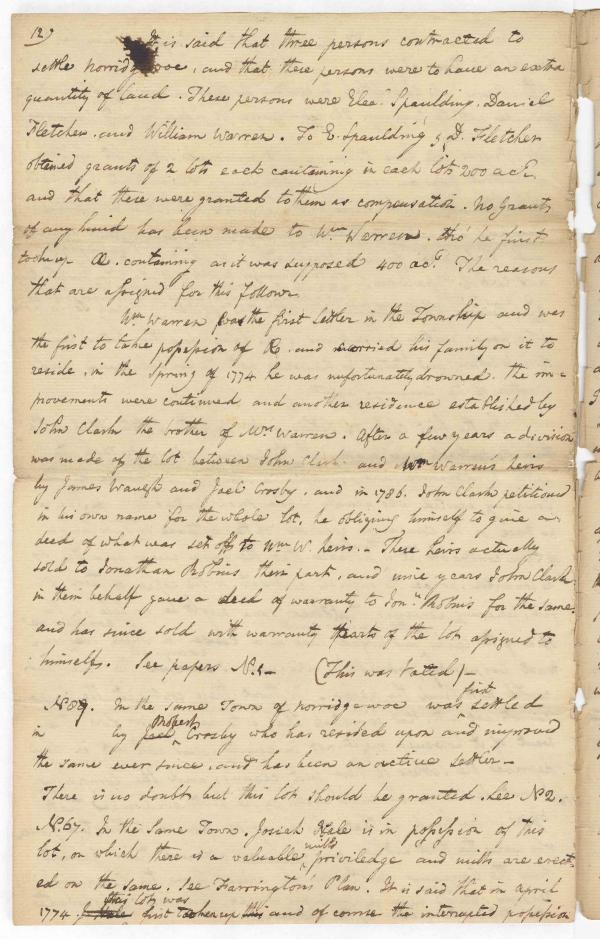 12)
It is said that three persons contracted to
settle Norridgewoc, and that these persons were to have an extra
quantity of land. These persons were Elea[r] Spaulding, Daniel
Fletcher, and William Warren. To E. Spaulding & D. Fletcher
obtained grants of 2 lots each containing in each lots 200 acs.
and that these were granted to them as compensation. No Grants
of any kind has been made to Wm Warren. tho' he first
took up R. containing as it was supposed 400 acs. The reasons
that are assigned for this follows.
Wm Warren was the first settler in the Township and was
the first to take possession of R. and carried his family on it to
reside, in the Spring of 1774 he was unfortunately drowned. the im=
provements were continued and another residence established by
John Clark the brother of Mrs Warren. After a few years a division
was made of the lot between John Clark and Wm Warren's heirs
by James Waugh and Joel Crosby, and in 1786. John Clark petitioned
in his own name for the whole lot, he obliging himself to give a
deed of what was set off to Wm W. heirs. - These heirs actually
sold to Jonathan Robins their part, and since years John Clark
in their behalf gave a deed of warranty to Jon.n Robins for the same.
and has since sold with warranty parts of the lot assigned to
himself. See papers No. 1 - (This was Voted) -
No 89. In the same Town of Norridgewoc was first settled
in by Joel Crosby who has resided upon and improved
the same ever since, and has been an active settler -
There is no doubt but this lot should be granted. See No 2.
No. 67. In the Same Town. Josiah Hale is in possession of this
lot, on which there is a valuable mill priviledge and mills are erect
ed on the same. See Farrington's Plan. It is said that in april
1774 this lot was first taken up and of course the interrupted possession